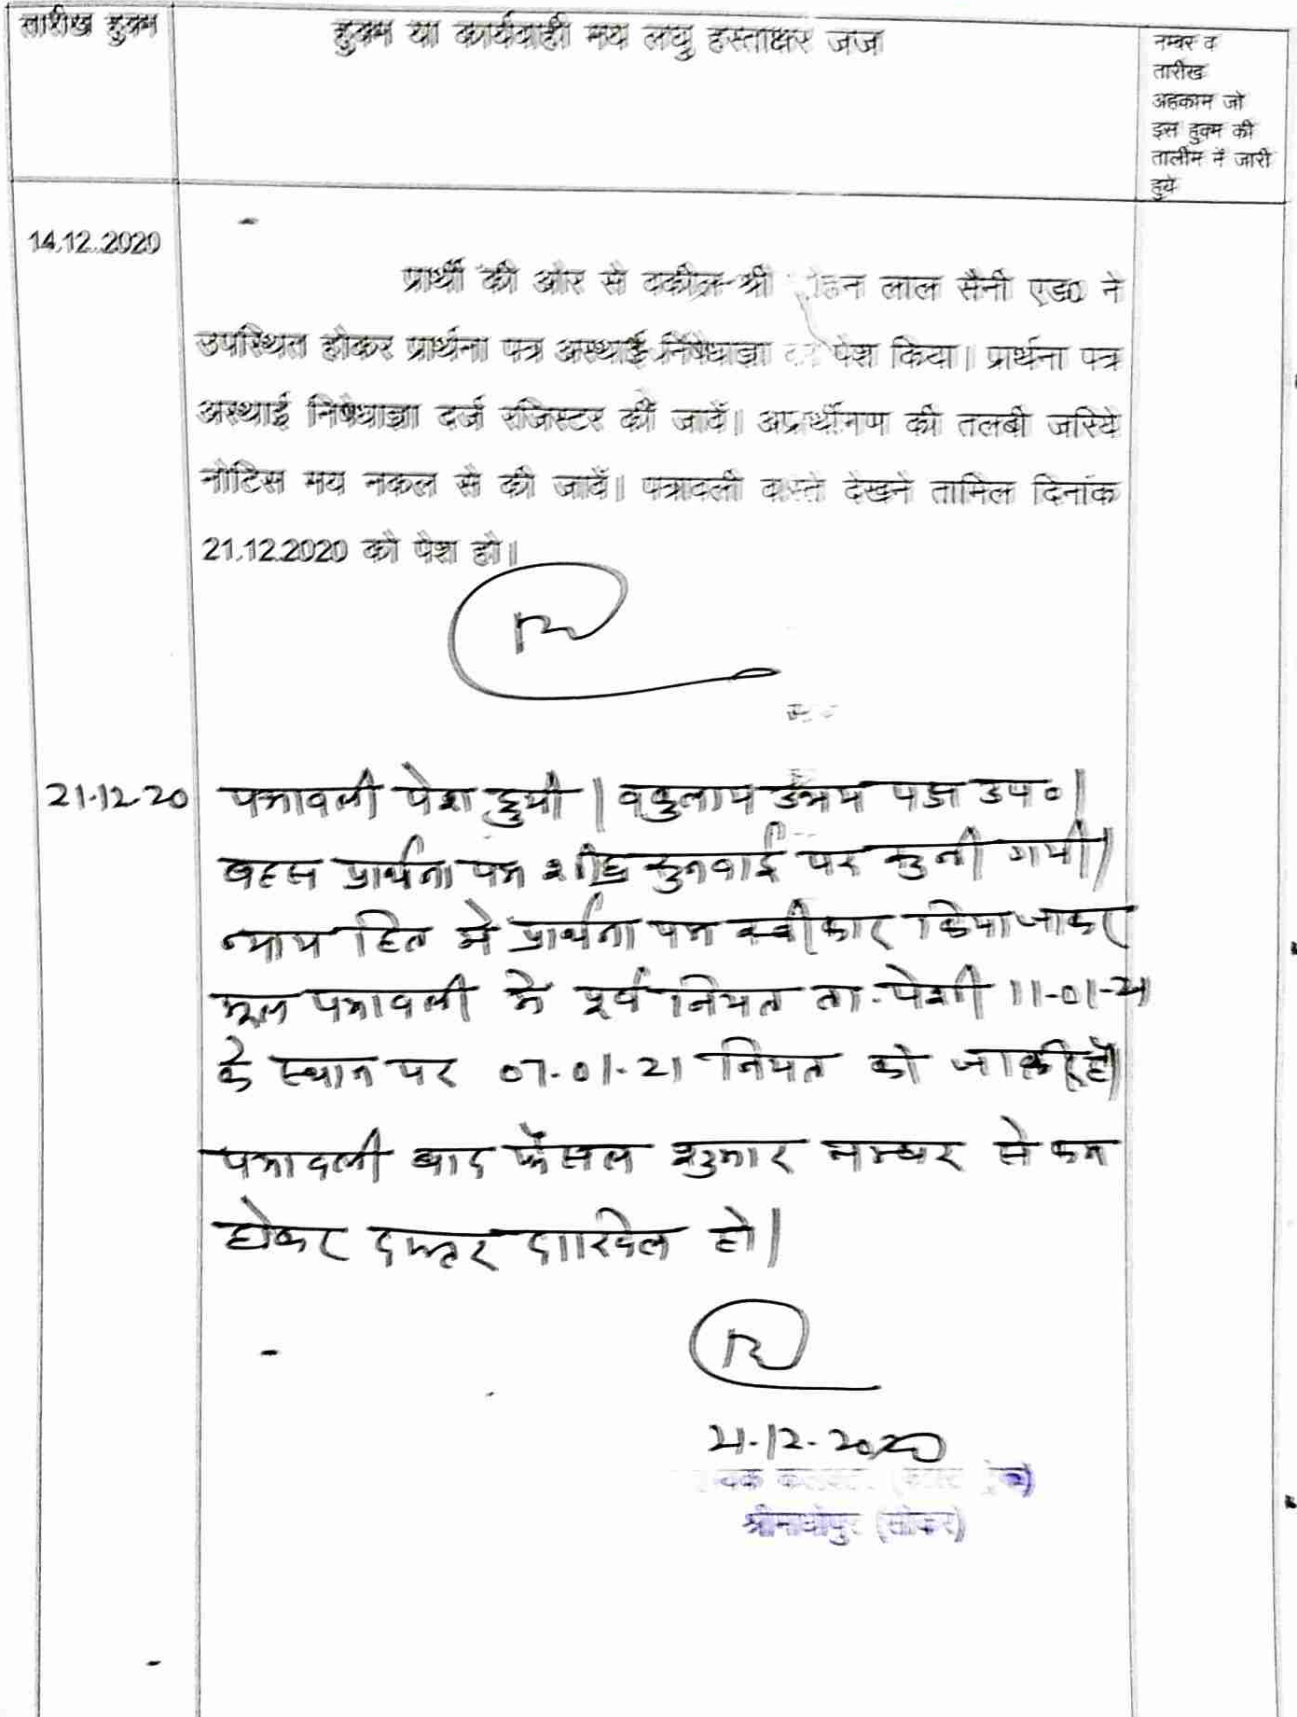 तारीख हुक्म
हुक्म या कार्यवाही मय लघु हस्ताक्षर जज
नम्बर व
तारीख
अहकाम जो
इस हुक्म की
तालीम में जारी
हुये
14.12.2020
प्रार्थी की ओर से वकील श्री लाल सैनी एड0 ने
उपस्थित होकर प्रार्थना पत्र अस्थाई निषेधाज्ञा का पेश किया। प्रार्थना पत्र
अस्थाई निषेधाज्ञा दर्ज रजिस्टर की जावें। अप्रार्थीगण की तलबी जरिये
नोटिस मय नकल से की जावें। पत्रावली वास्ते देखने तामिल दिनांक
21.12.2020 को पेश हो।
21-12-20
पत्रावली पेश हुयी। वकुलाय उभय पक्ष उप०।
बहस प्रार्थना पत्र शीघ्र सुनवाई पर सुनी गयी।
न्याय हित मे प्रार्थना पत्र स्वीकार किया जाकर
मूल पत्रावली मे पूर्व नियत ता. पेशी 11-01-21
के स्थान पर 07-01-21 नियत की जाती है।
पत्रावली बाद फैसल शुमार नम्बर से कम
होकर दफ्तर दाखिल हो।
21-12-2020
श्रीमाधोपुर (सीकर)